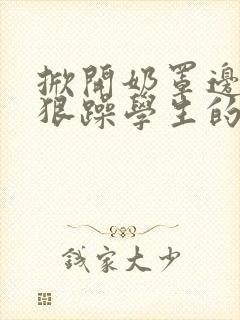 掀開奶罩邊
狠躁學生的
錢家大少